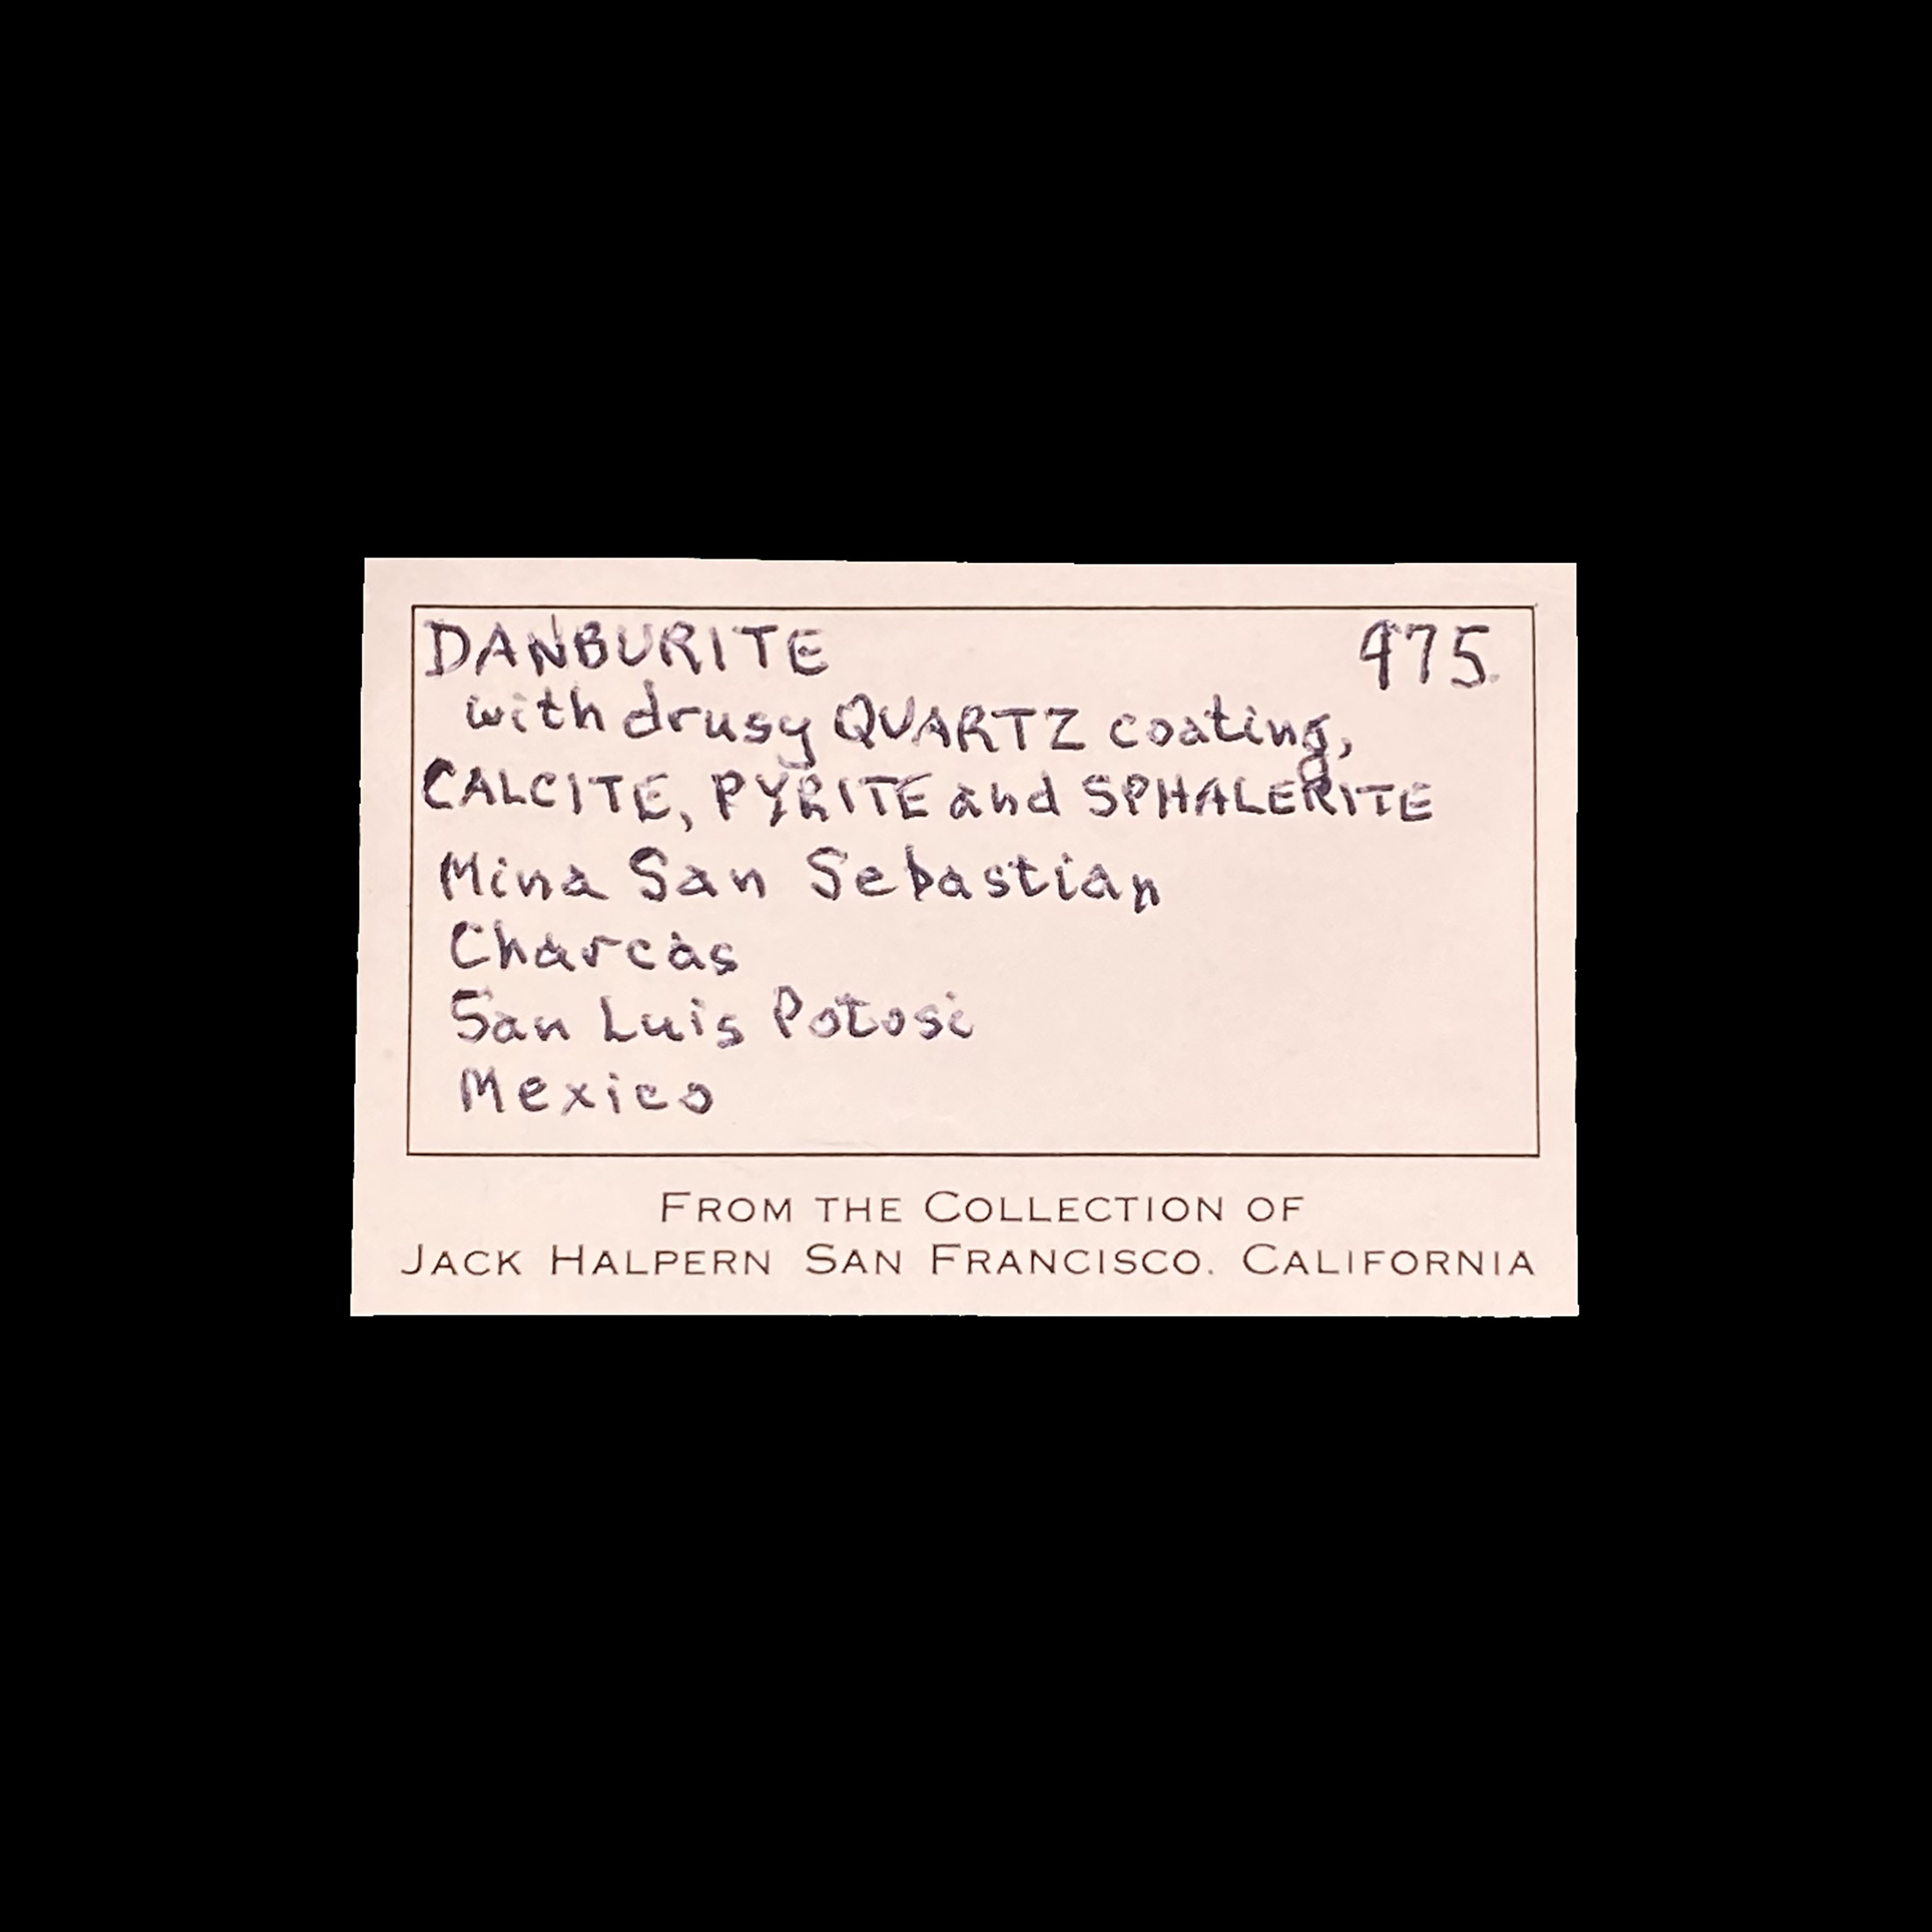 DANBURITE 975
with drusy QUARTZ coating,
CALCITE, PYRITE and SPHALERITE
Mina San Sebastian
Charcas
San Luis Potosi
Mexico
FROM THE COLLECTION OF
JACK HALPERN SAN FRANCISCO. CALIFORNIA